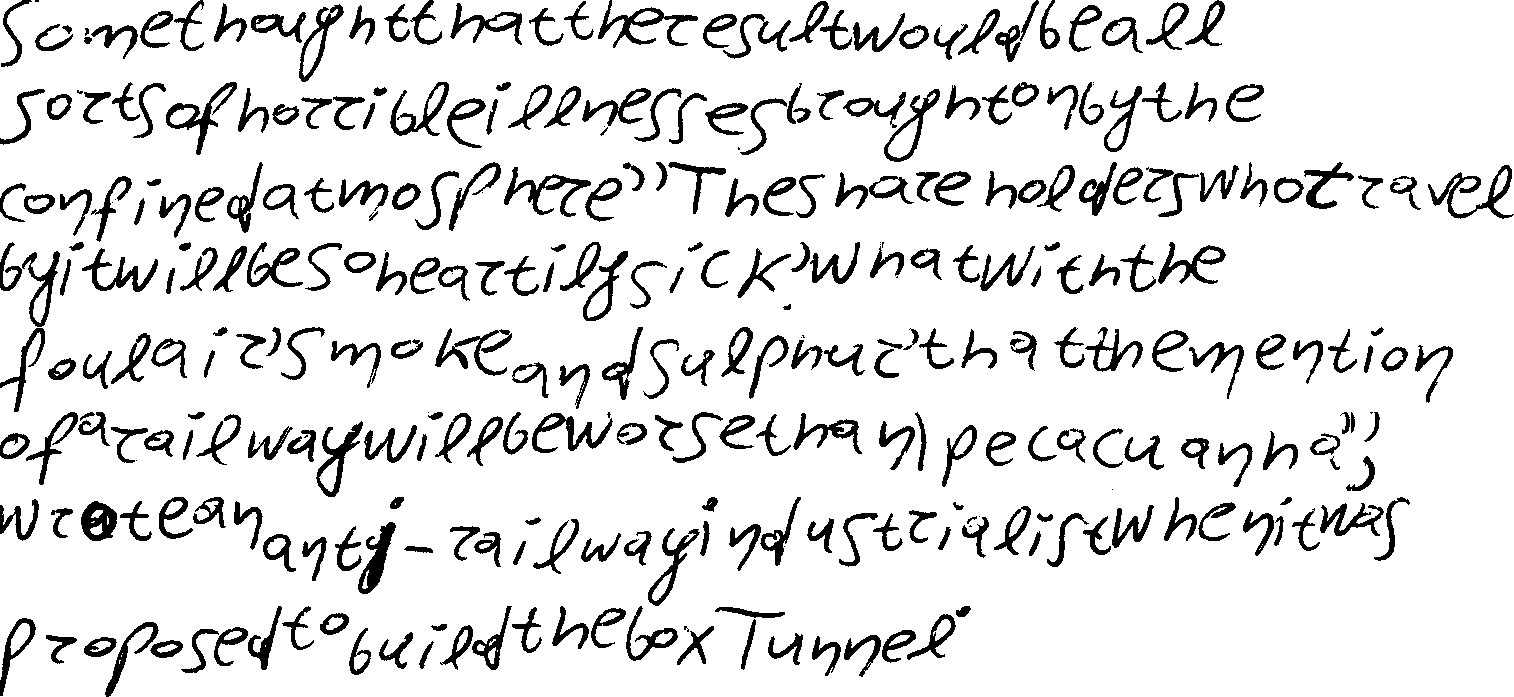 Some thought that the result would be all
sorts of horrible illnesses brought on by the
confined atmosphere" "The shareholders who travel
by it will be so heartily sick, what with the
foul air, smoke and sulphur, that the mention
of a railway will be worse than Ipecacuanha",
wrote an anti-railway industrialist when it was
proposed to build the box Tunnel.